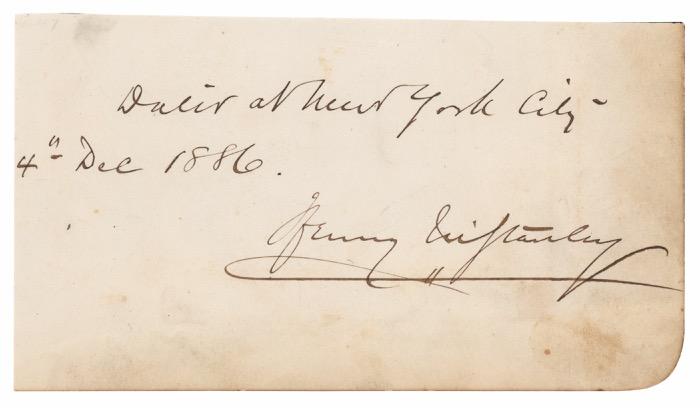 Dated at New York City
4" Dec 1886.
Henry M Stanley